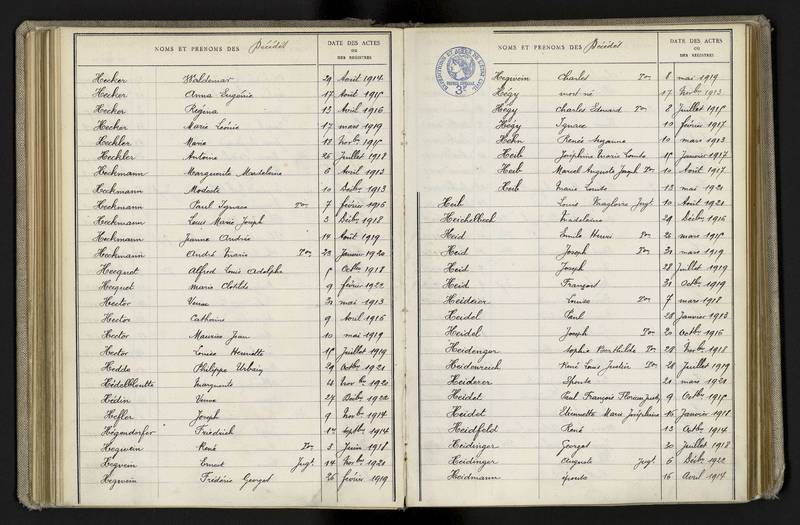 NOMS ET PRÉNOMS DES Décédés
DATE DES ACTES
OU
DES REGISTRES
Hecker Waldemar 29 Août 1914
Hecker Anna Eugénie 17 Août
Hecker Régina 13 Avril 1916
Hecker Marie Léonie 17 mars 1919
Heckler Marie 12 Novbre
Heckler Antoine 26 Juillet 1918
Heckmann Marguerite Madeleine 6 Avril 1913
Heckmann Modeste 10 Décbre 1913
Heckmann Paul Ignace 7 février 1916
Heckmann Louis Marie Joseph 3 Décbre 1918
Heckmann Jeanne Andrée 14 Août 1919
Heckmann André Marie 23 Janvier 1920
Hecquet Alfred Louis Adolphe Octbre 1918
Hecquet Marie Clotilde 9 février 1922
Hector Veuve 31 mai 1913
Hector Catherine 9 Avril 1916
Hector Maurice Jean 10 mai 1919
Hector Louise Henriette Juillet 1919
Hedde Philippe Urbain 29 Octbre 1921
Marguerite 4 novbre 1920
Hédin Veuve 27 Décbre 1922
Hefler Joseph 9 Novbre 1914
Hégendorfer Friedrich Septbre 1914
Hegwein René 3 Juin 1918
Hegwein Ernest Jugt 14 Novbre 1921
Hegwein Frédéric Georges 26 février 1919
NOMS ET PRÉNOMS DES Décédés
DATE DES ACTES
OU
DES REGISTRES
Hegwein Charles 8 mai 1919
Hégy mort né 17 Novbre 1913
Hégy Charles Edouard 8 Juillet
Hégy Ignace 19 février 1917
Hehn Renée Suzanne 10 mars 1913
Heib Joséphine Marie Louise Janvier 1917
Heib Marcel Auguste Joseph 10 Août 1917
Heib Marie Louise 13 mai 1921
Heib Louis Jugt 10 Août 1921
Heichelbech Madeleine 29 Décbre 1916
Heid Emile Henri 26 mars
Heid Joseph 31 mars 1919
Heid Joseph 28 Juillet 1919
Heid François 31 Octbre 1919
Heideier Louise 7 mars 1918
Heidel Paul 28 Janvier 1913
Heidel Joseph 20 Octbre 1916
Heidenger Sophie Berthilde 28 Novbre 1918
Heidenreich René Louis 28 Juillet 1919
Heiderer Epouse 21 mars 1921
Heidet Paul François 9 Octbre
Heidet Etiennette Marie Joséphine 15 Janvier 1918
Heidfeld René 13 Octbre 1914
Heidinger Georges 30 Juillet 1918
Heidinger Auguste Jugt 6 Décbre 1922
Heidmann épouse 16 Avril 1914